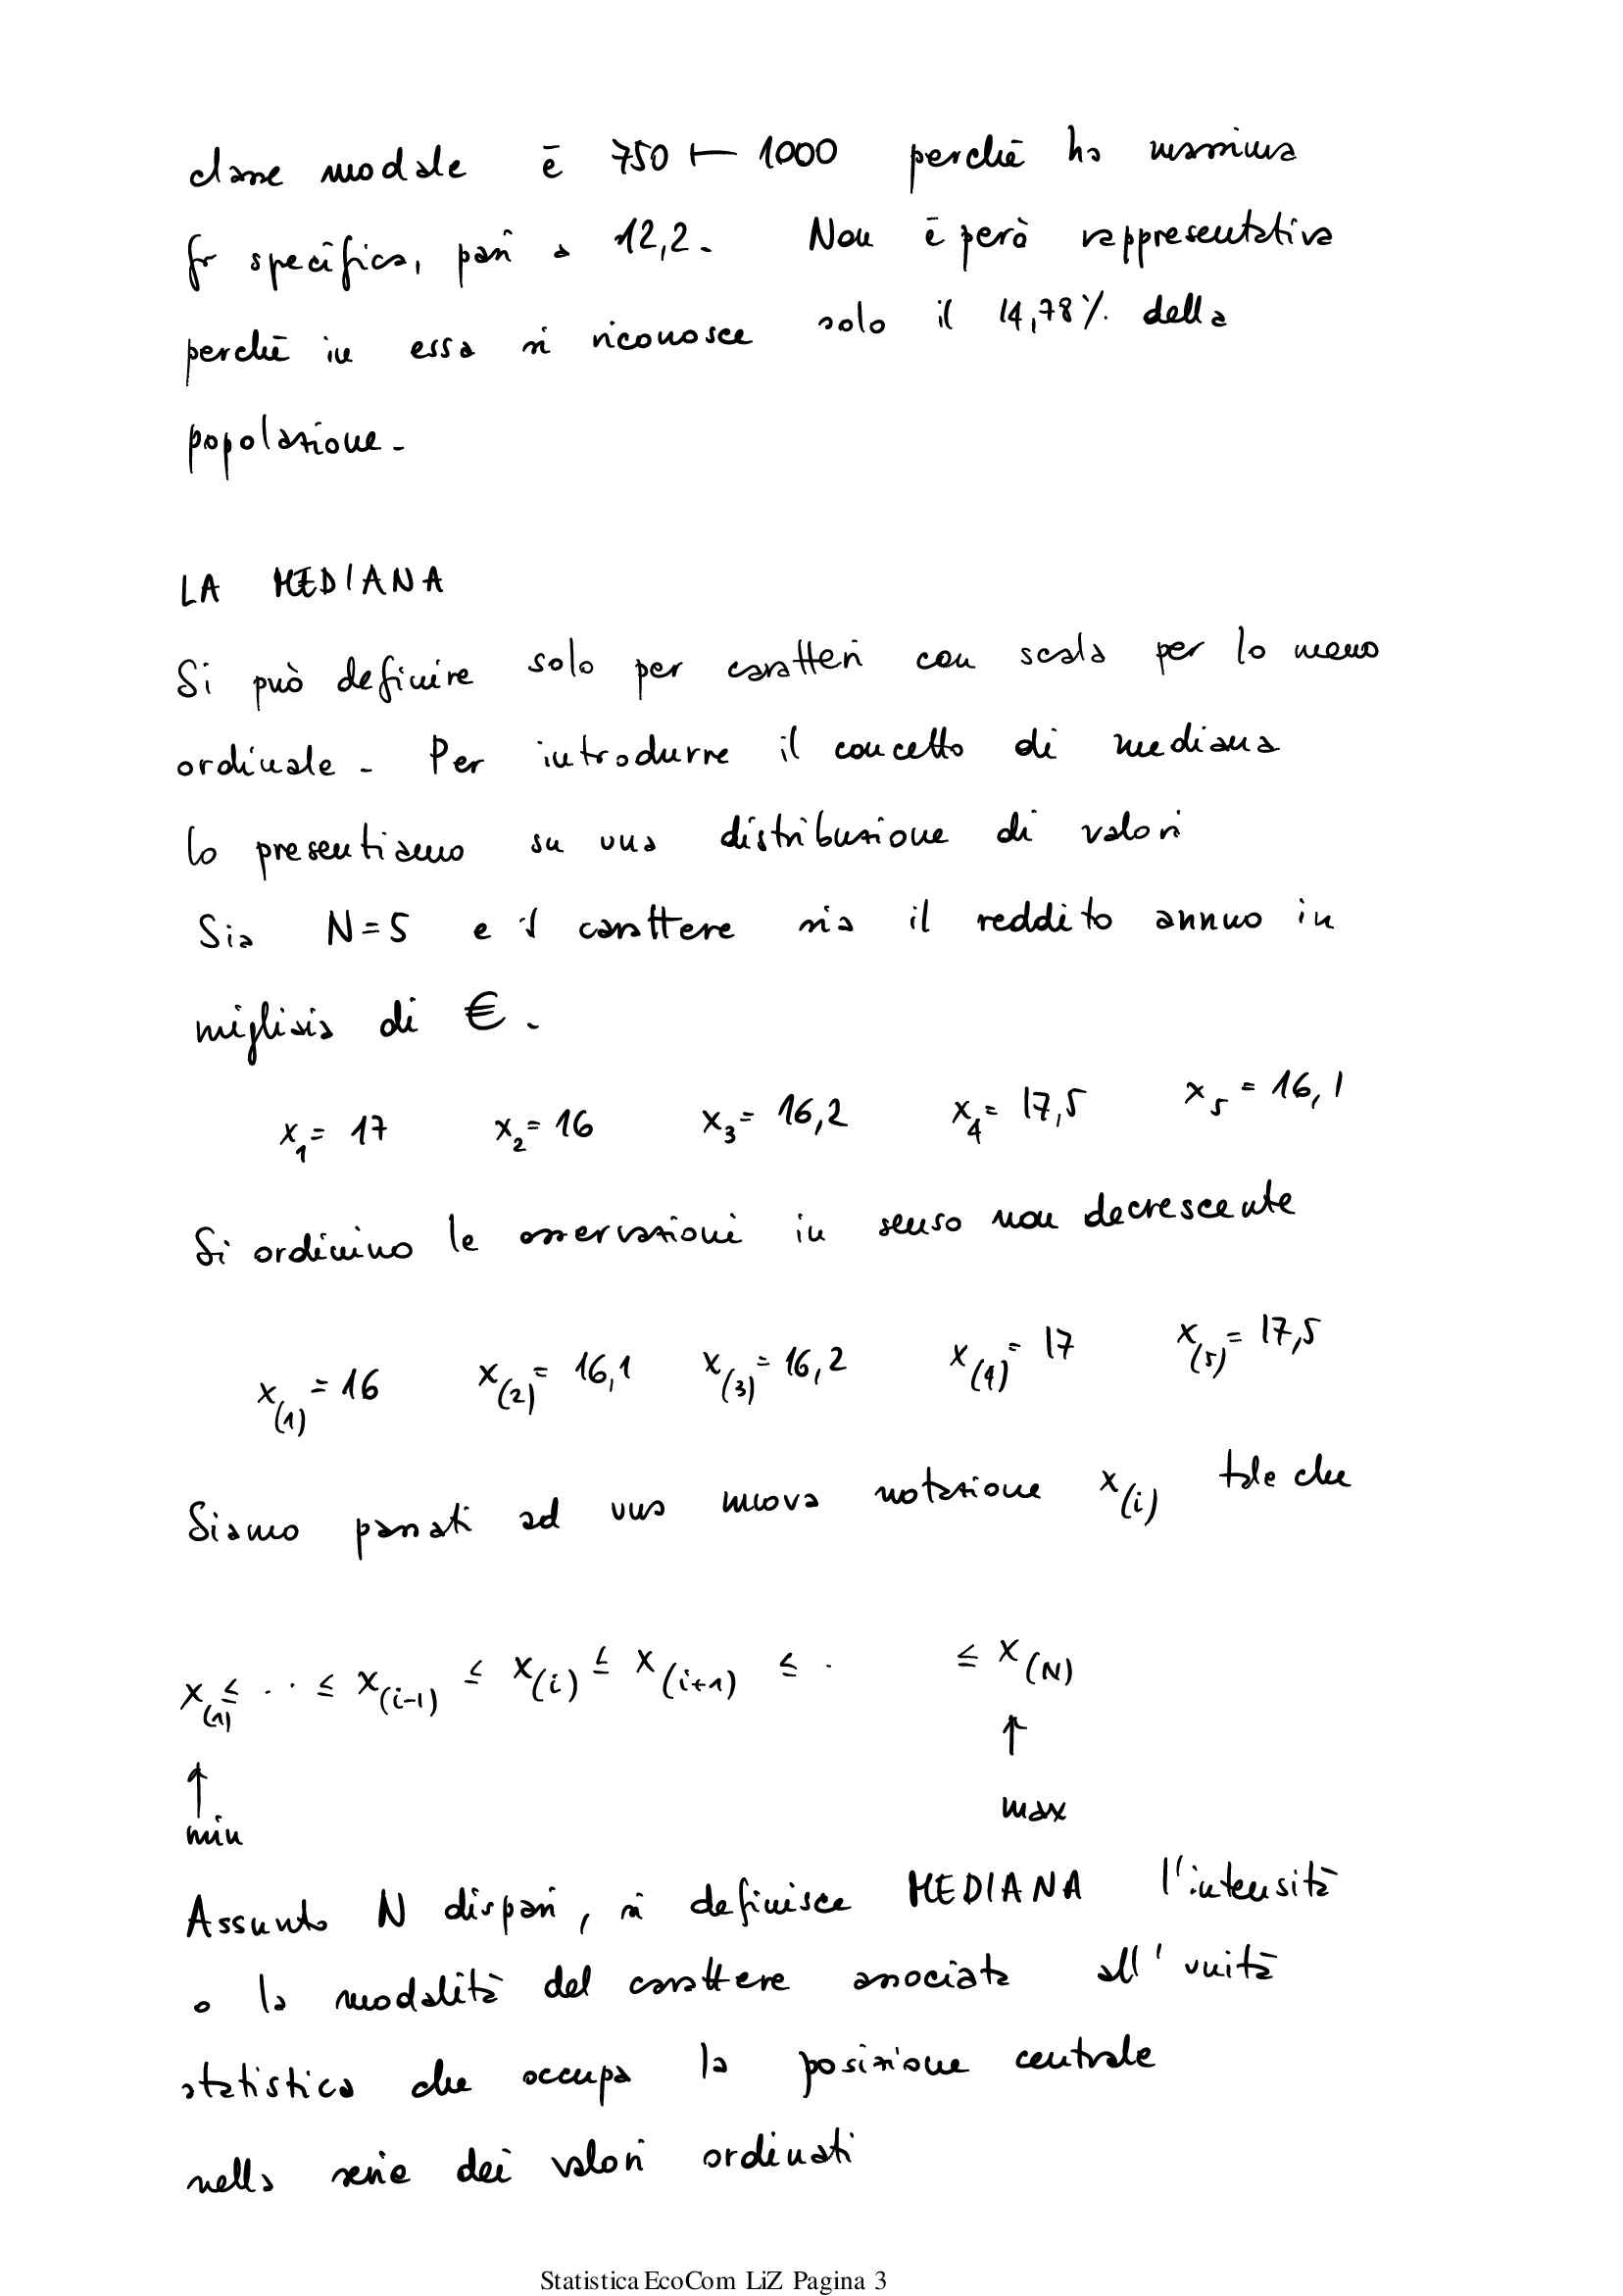 classe modale è 750 ⊢ 1000 perché ha massima
fr specifica, pari a 12,2. Non è però rappresentativa
perché in essa si riconosce solo il 14,78% della
popolazione.
LA MEDIANA
Si può definire solo per caratteri con scala per lo meno
ordinale. Per introdurre il concetto di mediana
lo presentiamo su una distribuzione di valori
Sia N=5 e il carattere sia il reddito annuo in
migliaia di €.
x₁ = 17 x₂ = 16 x₃ = 16,2 x₄ = 17,5 x₅ = 16,1
Si ordinino le osservazioni in senso non decrescente
x₍₁₎ = 16 x₍₂₎ = 16,1 x₍₃₎ = 16,2 x₍₄₎ = 17 x₍₅₎ = 17,5
Siamo passati ad una nuova notazione x_(i) tale che
x_(1) ≤ .. ≤ x_(i-1) ≤ x_(i) ≤ x_(i+1) ≤ . ≤ x_(N)
↑ ↑
min max
Assunto N dispari, si definisce MEDIANA l'intensità
o la modalità del carattere associata all'unità
statistica che occupa la posizione centrale
nella serie dei valori ordinati
Statistica EcoCom LiZ Pagina 3